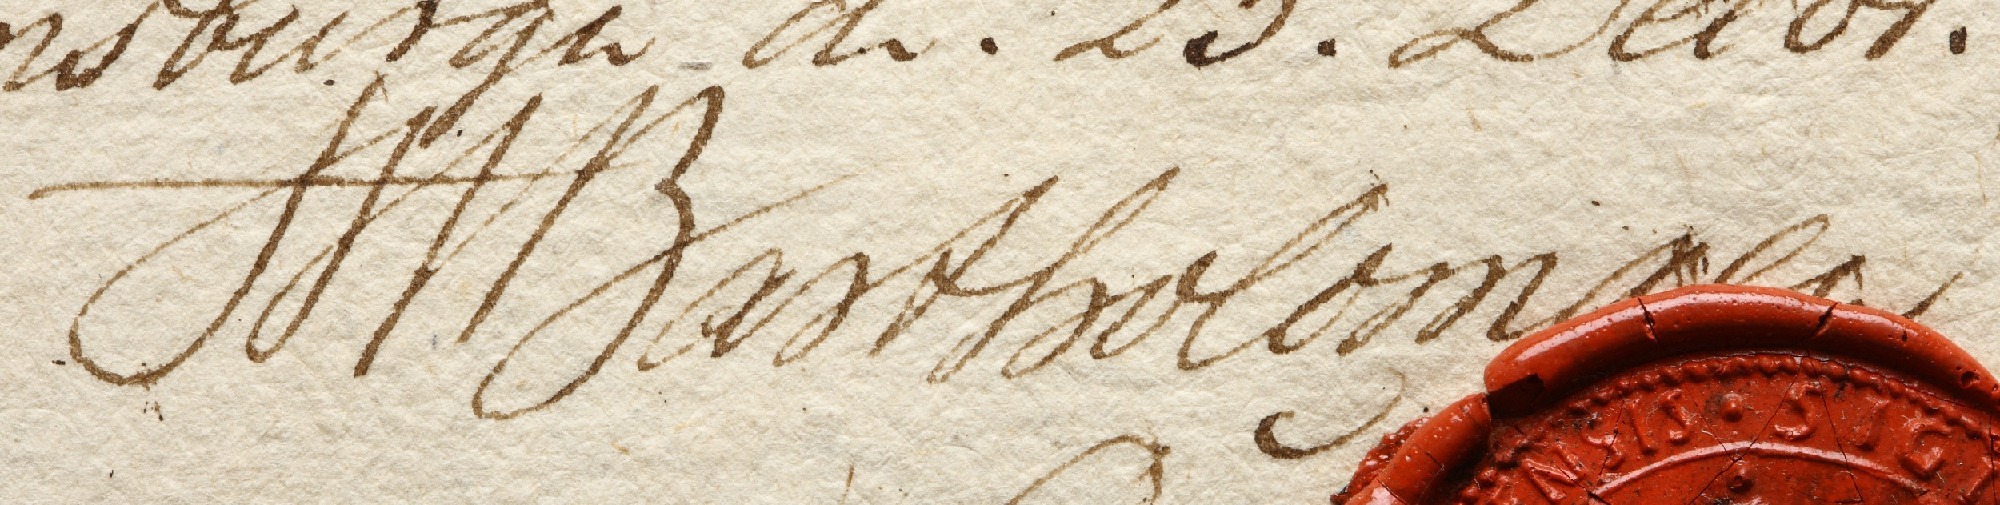 nsburga d. 23. Decbr.
HBartholomäi
NSIS · SIG